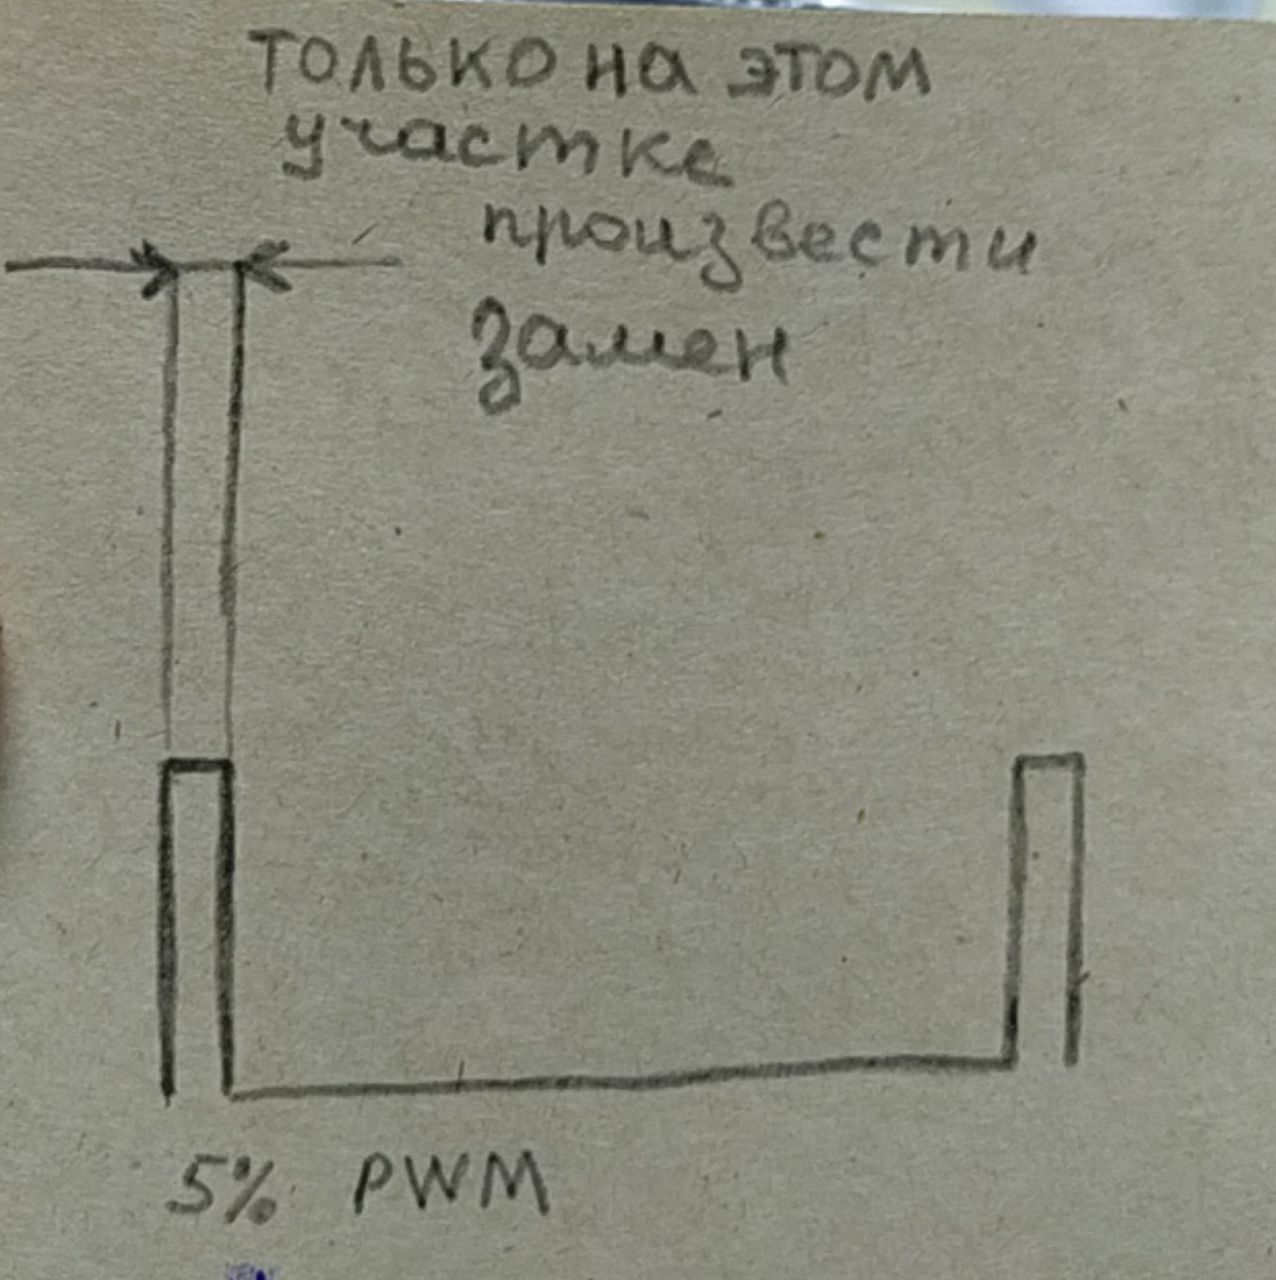 только на этом
участке
произвести
замен
5% PWM